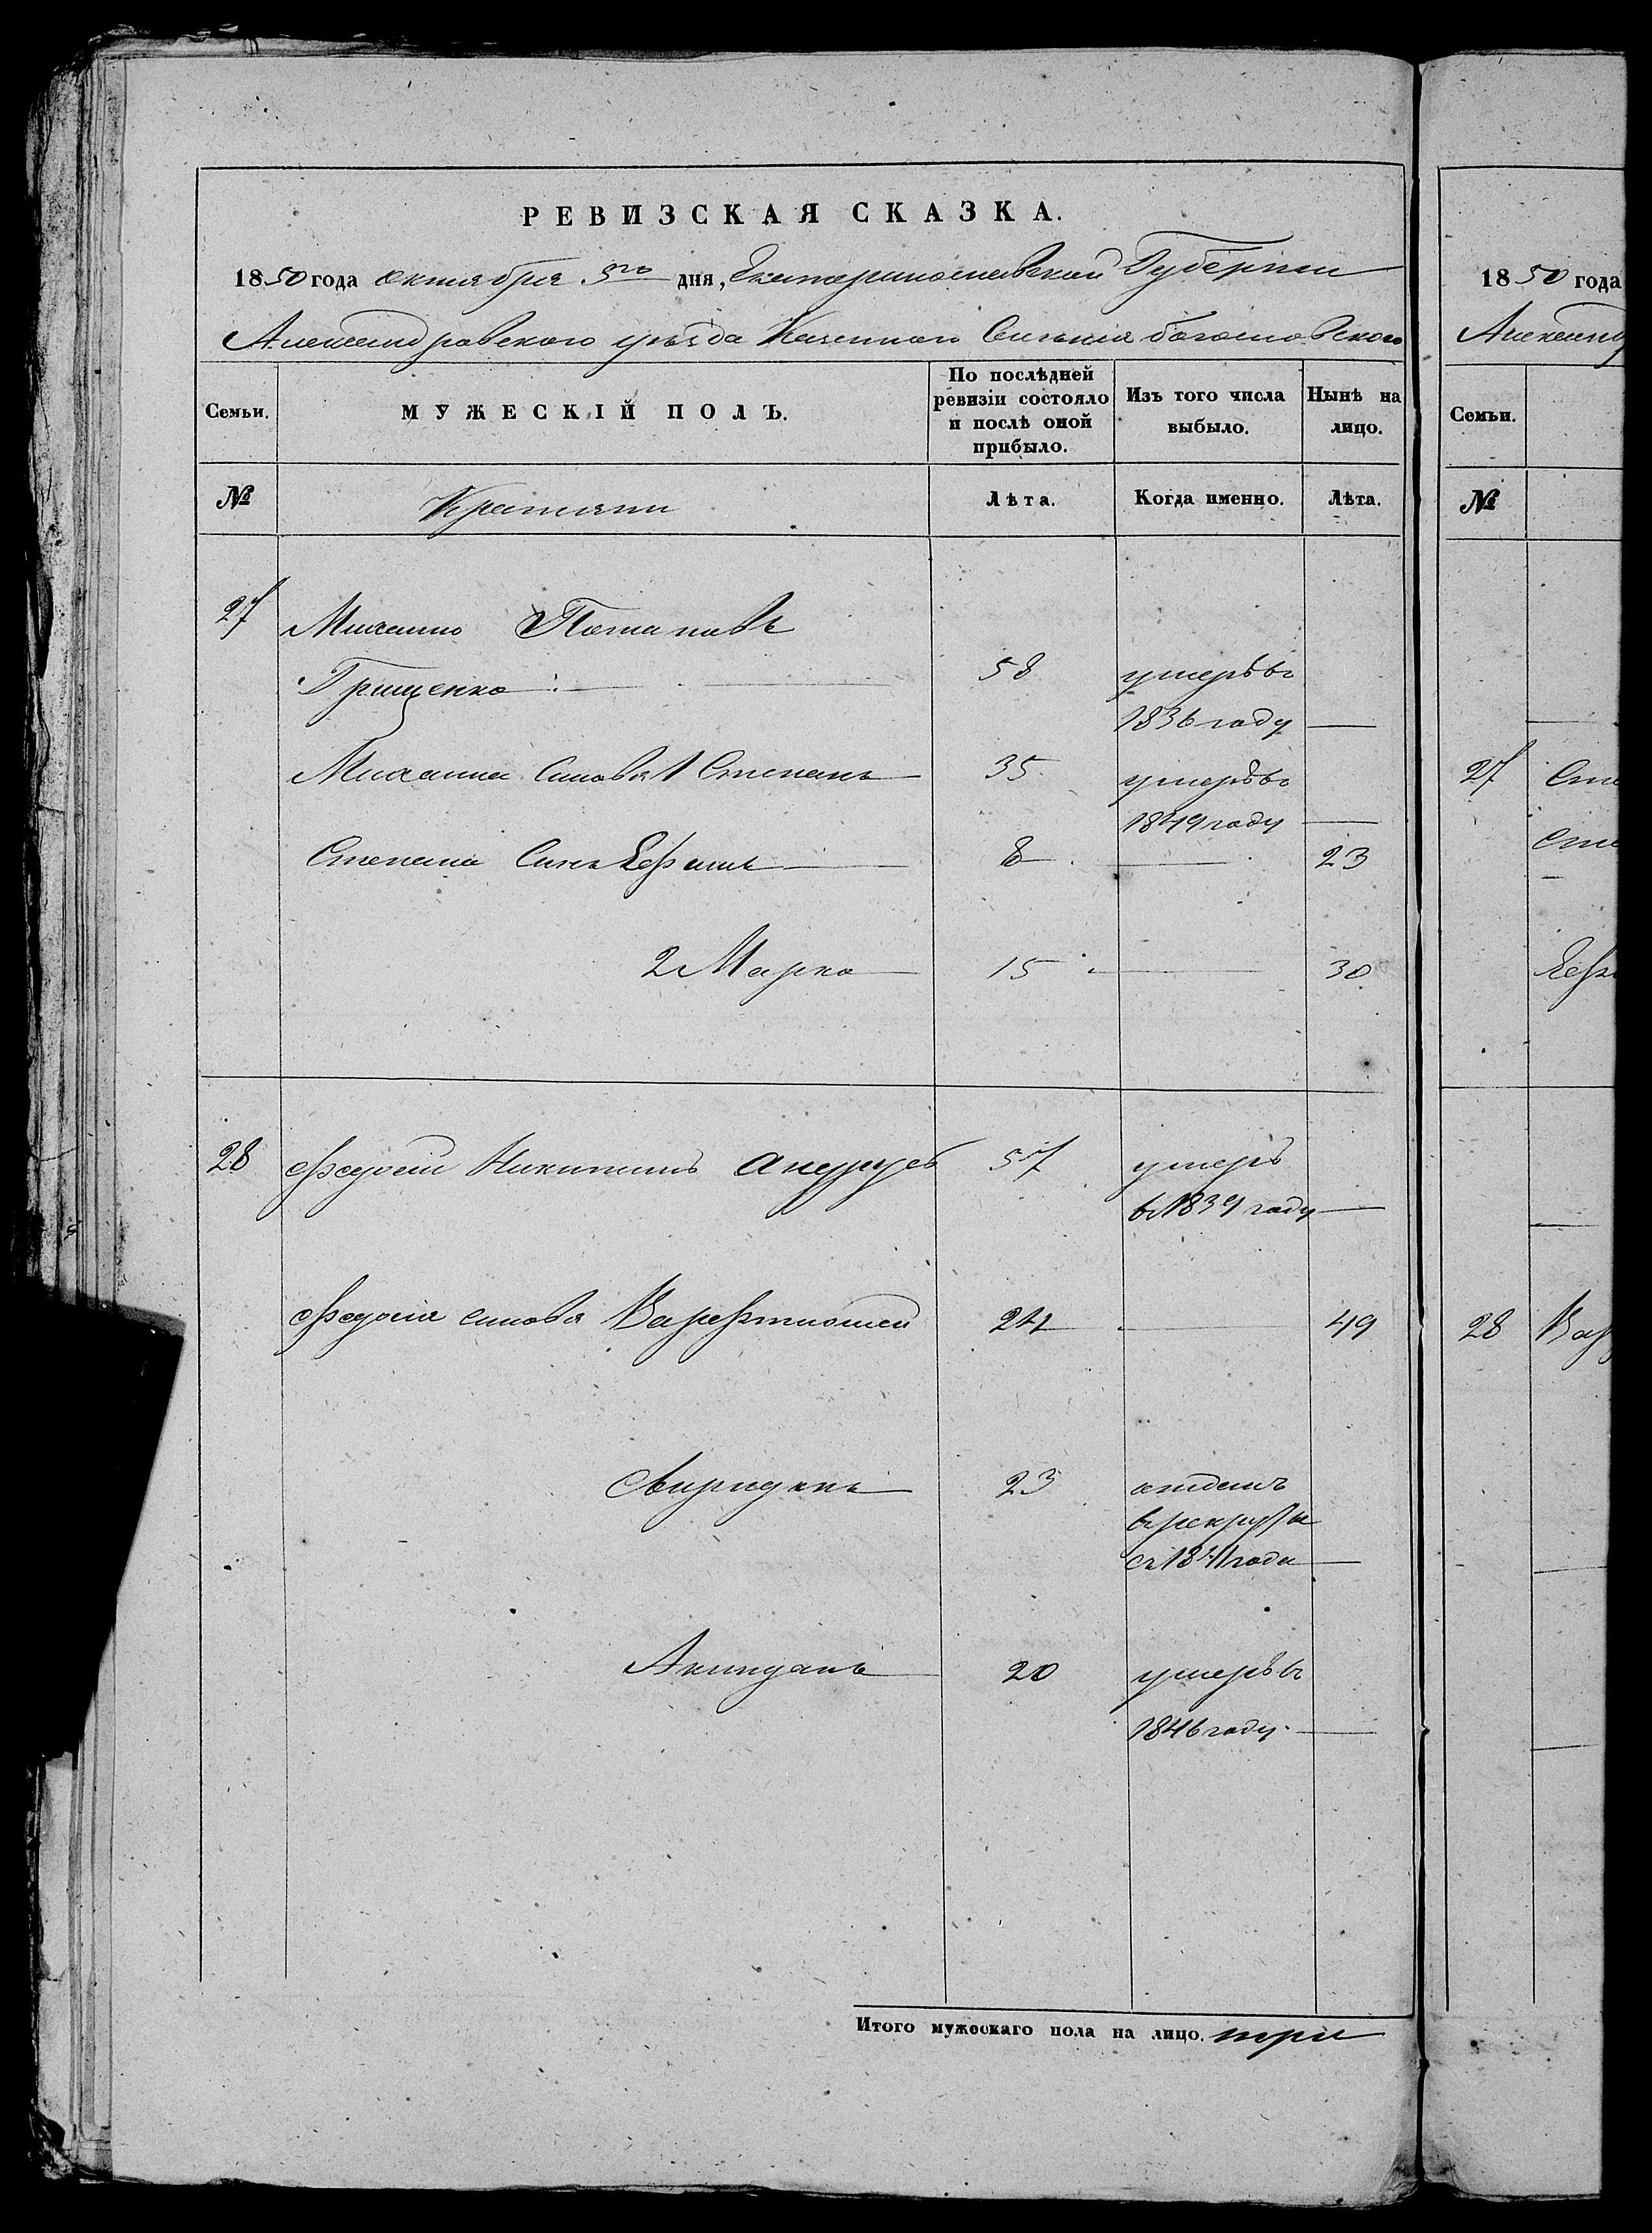 РЕВИЗСКАЯ СКАЗКА.
1850 года октября 5го дня, Екатеринославской Губернии
Александровского уѣзда Казенного Селенія богословского
Семьи.
МУЖЕСКІЙ ПОЛЪ.
По послѣдней ревизіи состояло и послѣ оной прибыло.
Изъ того числа выбыло.
Нынѣ на лицо.
№
Лѣта.
Когда именно.
Лѣта.
27 Михаило Потаповъ
Грищенко 58 умеръ въ
1836 году
Михаила Сыновья 1 Степанъ 35 умеръ въ
1849 году
Степана Сынъ Ефимъ 8 23
2 Марко 15 30
28 Федосій Никитинъ 57 умеръ
въ 1839 году
Федосія сыновья 24 49
Свиридонъ 23 отданъ
в рекруты
съ 1841 года
Акиндинъ 20 умеръ въ
1846 году
Итого мужескаго пола на лицо. три
1850 года
Александ
Семьи.
№
27 Сте
Сте
Ефи
28 Вар